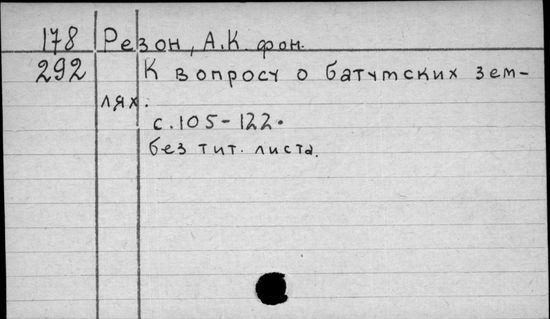 178 Резон, А.К. фон.
292 К вопросу о батумских зем-
лях.
с. 105-122.
без тит. листа.